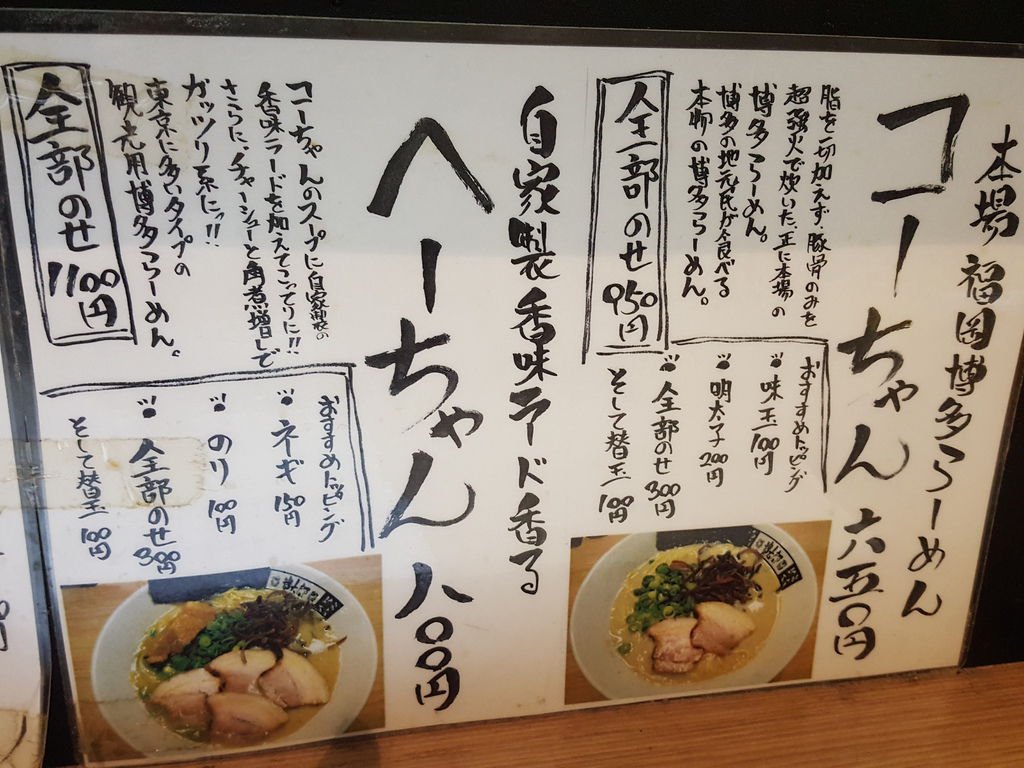 本場 福岡博多らーめん
コーちゃん 六五〇円
脂を一切加えず、豚骨のみを
超強火で炊いた、正に本場の
博多らーめん。
博多の地元民が食べる
本物の博多らーめん。
全部のせ 950円
おすすめトッピング
味玉 100円
明太子 200円
全部のせ 300円
そして替玉 100円
自家製香味ラード香る
へーちゃん 八〇〇円
コーちゃんのスープに自家製の
香味ラードを加えてこってりに!!
さらに、チャーシューと角煮増しで
ガッツリ系に!!
東京に多いタイプの
観光用博多らーめん。
全部のせ 1100円
おすすめトッピング
ネギ 150円
のり 100円
全部のせ 300円
そして替玉 100円